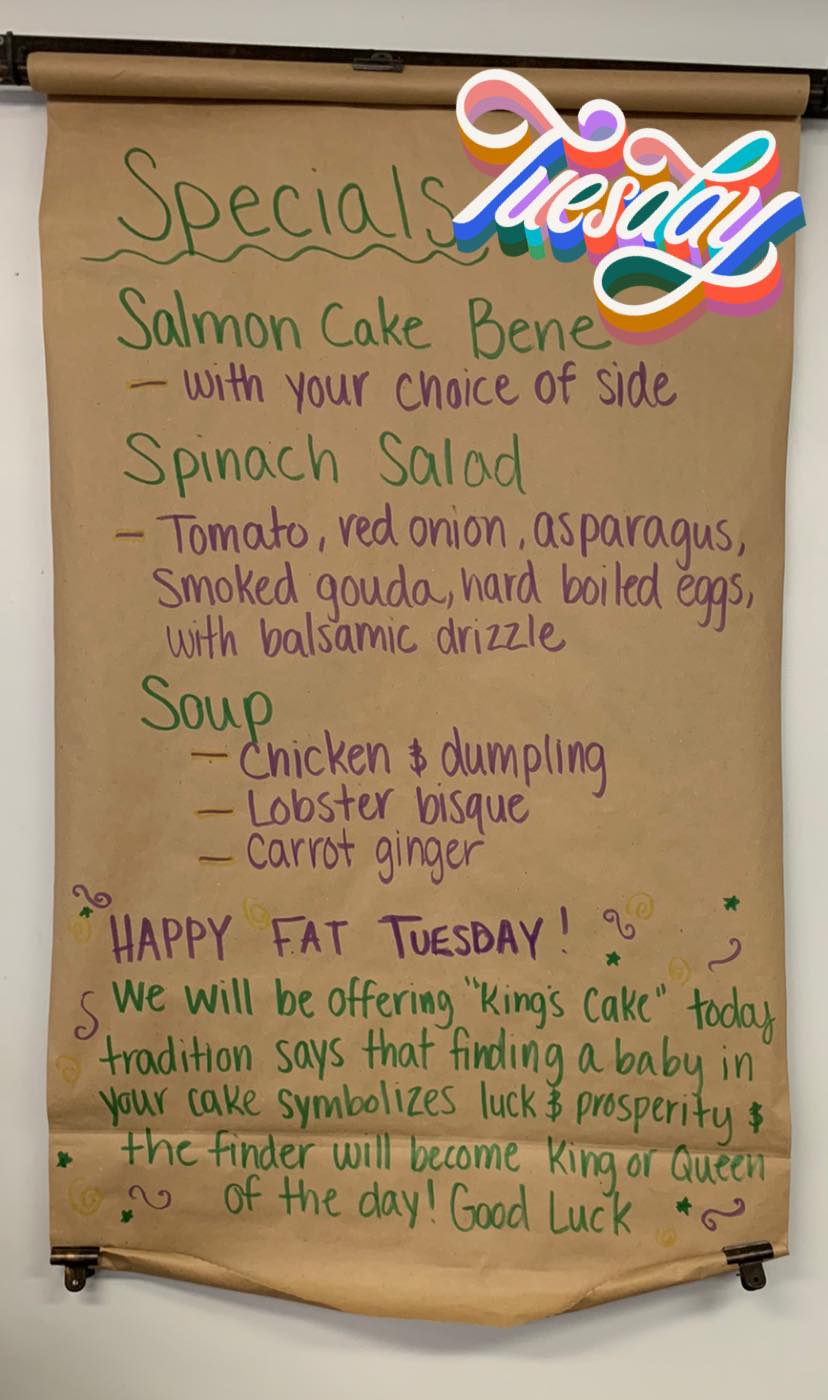 Specials
Tuesday
Salmon Cake Bene
- with your choice of side
Spinach Salad
- Tomato, red onion, asparagus,
smoked gouda, hard boiled eggs,
with balsamic drizzle
Soup
- Chicken & dumpling
- Lobster bisque
- Carrot ginger
HAPPY FAT TUESDAY!
We will be offering "King's Cake" today
tradition says that finding a baby in
your cake symbolizes luck & prosperity &
the finder will become King or Queen
of the day! Good Luck